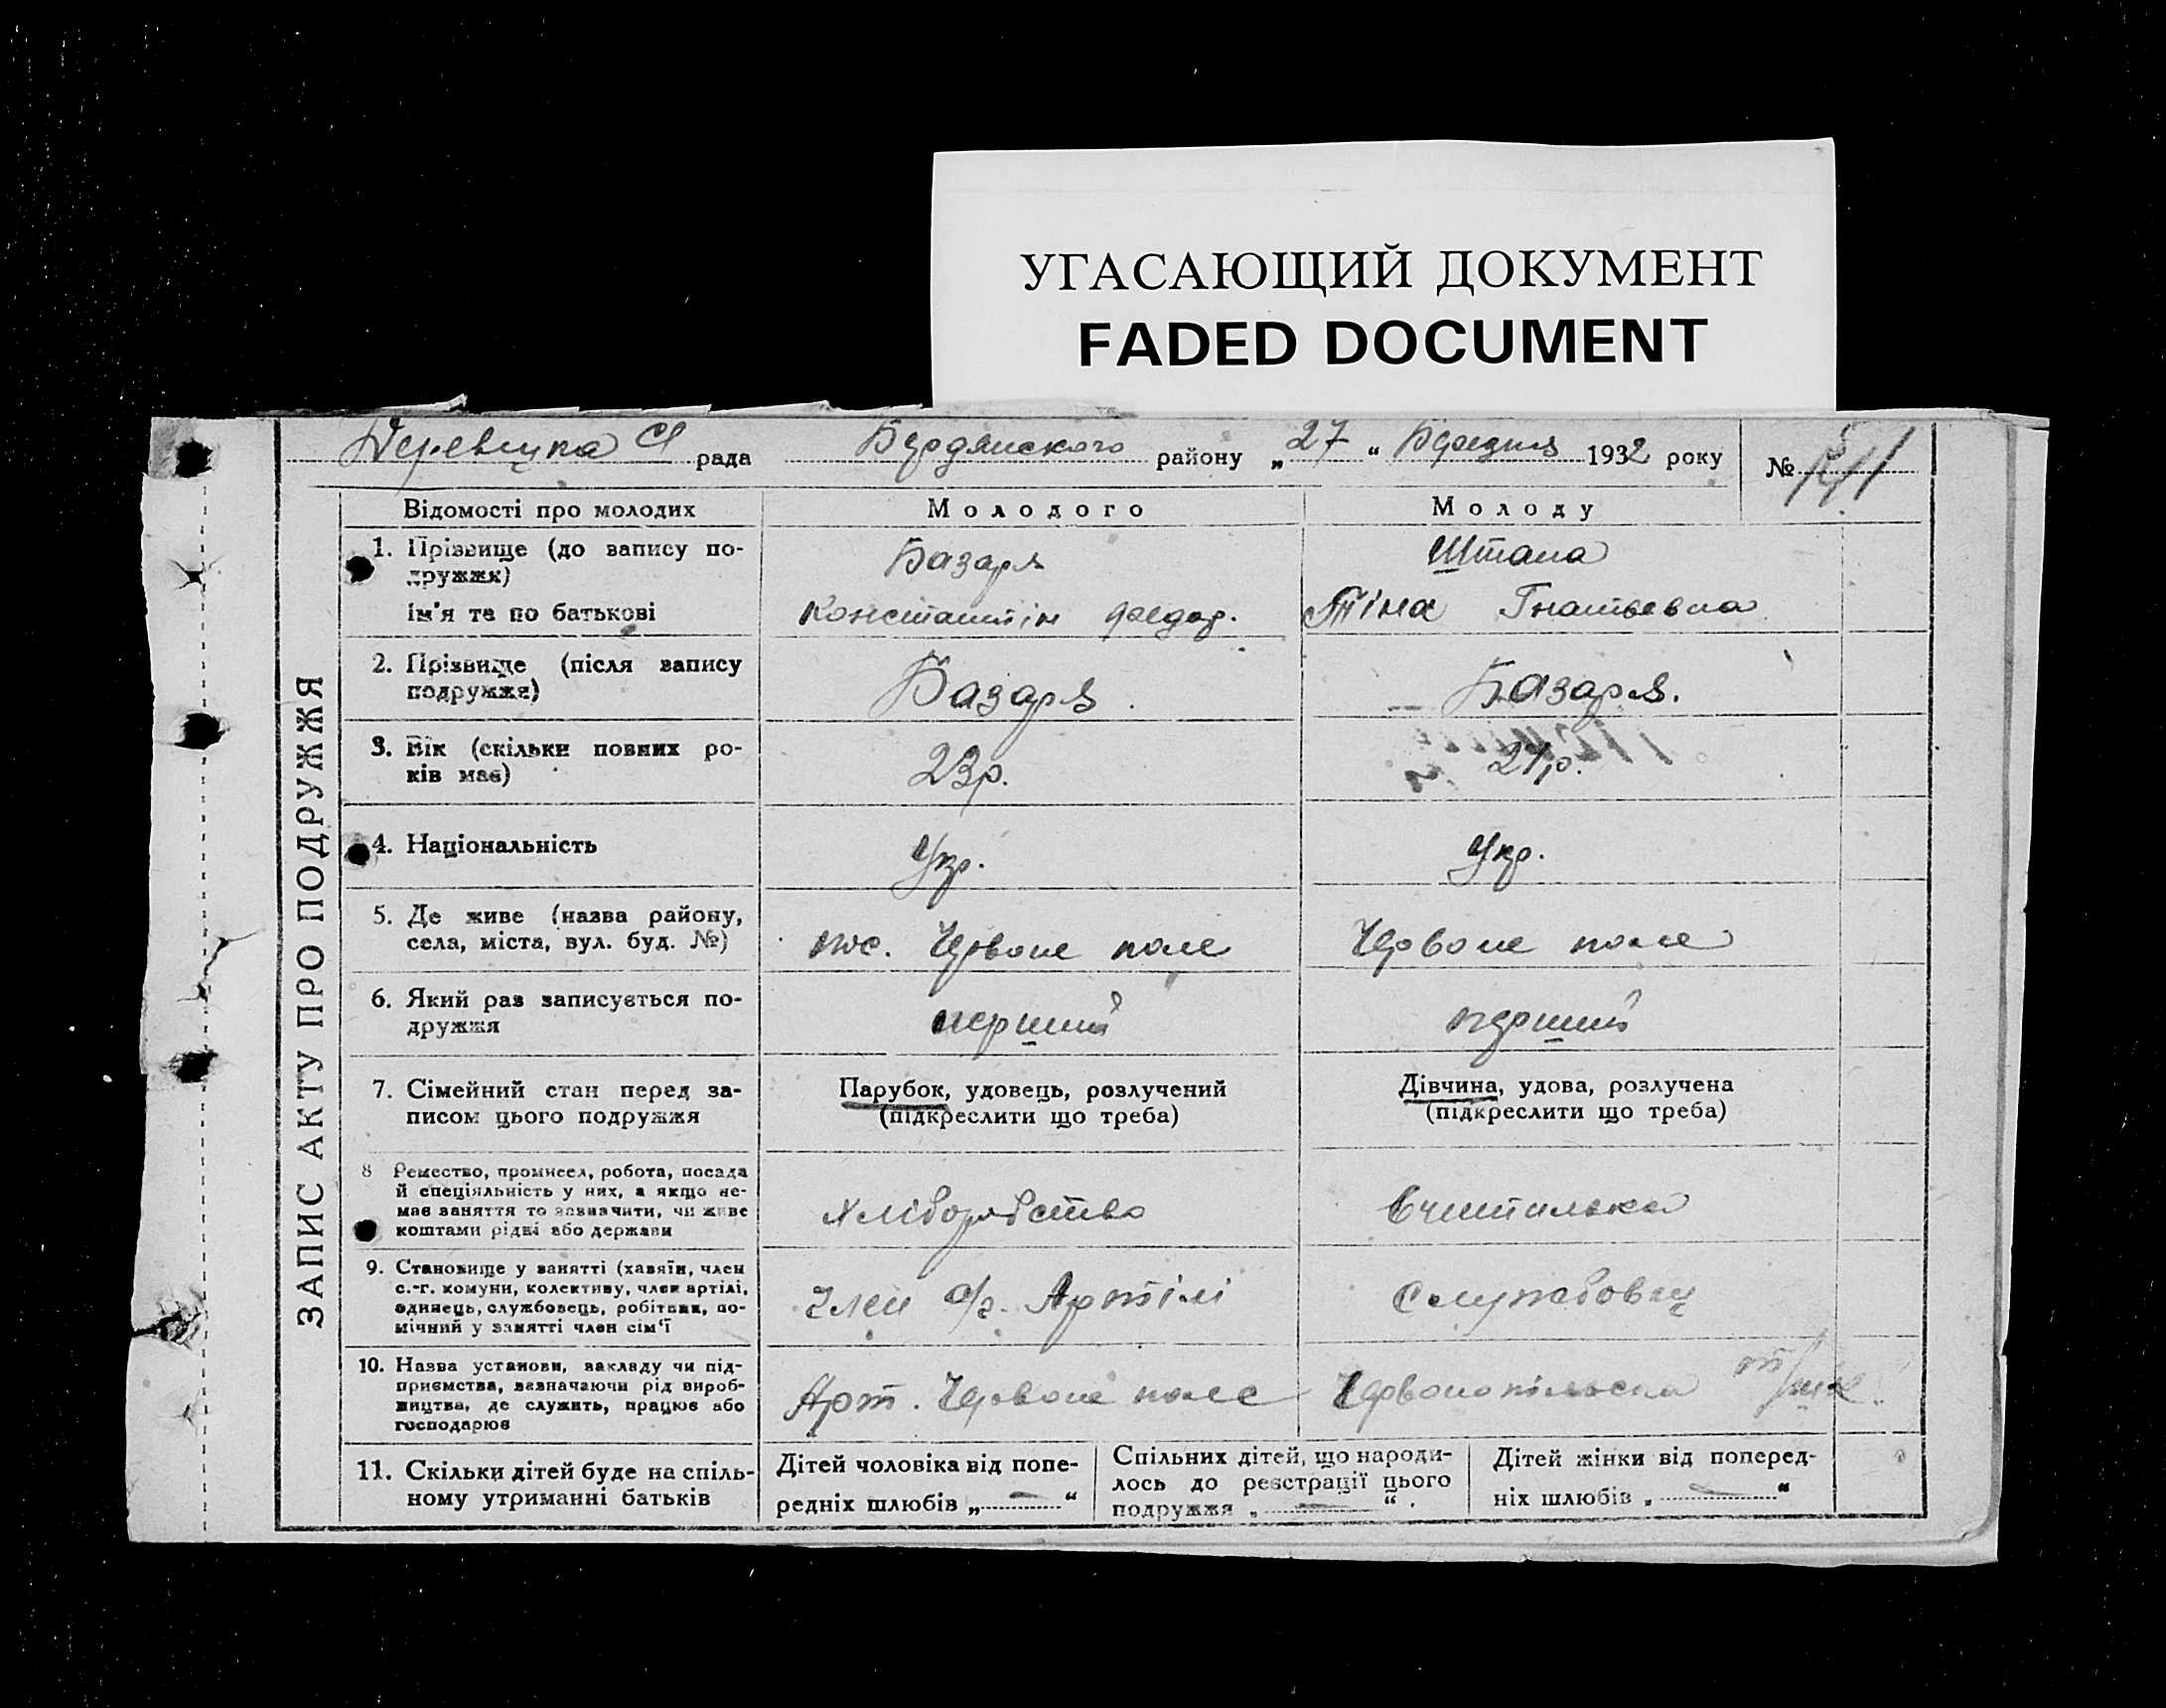 УГАСАЮЩИЙ ДОКУМЕНТ
FADED DOCUMENT
рада Бердянского району „27“ Березня 1932 року №
ЗАПИС АКТУ ПРО ПОДРУЖЖЯ
Відомості про молодих Молодого Молоду
1. Прізвище (до запису по-
дружжя) Базаря Штана
Ім'я та по батькові Константін Федор. Тіна Гнатьевна
2. Прізвище (після запису
подружжя) Базаря. Базаря.
3. Вік (скільки повних ро-
ків має) 23р. 21р.
4. Національність Укр. Укр.
5. Де живе (назва району,
села, міста, вул. буд. №) пос. Червоне поле Червоне поле
6. Який раз записується по-
дружжя перший перший
7. Сімейний стан перед за-
писом цього подружжя
Парубок, удовець, розлучений
(підкреслити що треба)
Дівчина, удова, розлучена
(підкреслити що треба)
8 Ремество, промисел, робота, посада
й спеціяльність у них, а якщо не-
має заняття то зазначити, чи живе
коштами рідні або держави
Хліборобство Вчителька
9. Становище у занятті (хазяїн, член
с.-г. комуни, колективу, член артілі,
одинець, службовець, робітник, по-
мічний у занятті член сім'ї
Член с/г. Артілі Службовец
10. Назва установи, закладу чи під-
приємства, зазначаючи рід вироб-
ництва, де служить, працює або
господарює
Арт. Червоне поле Червонопільська
11. Скільки дітей буде на спіль-
ному утриманні батьків
Дітей чоловіка від попе-
редніх шлюбів „—“
Спільних дітей, що народи-
лось до реєстрації цього
подружжя „—“.
Дітей жінки від поперед-
ніх шлюбів „—“